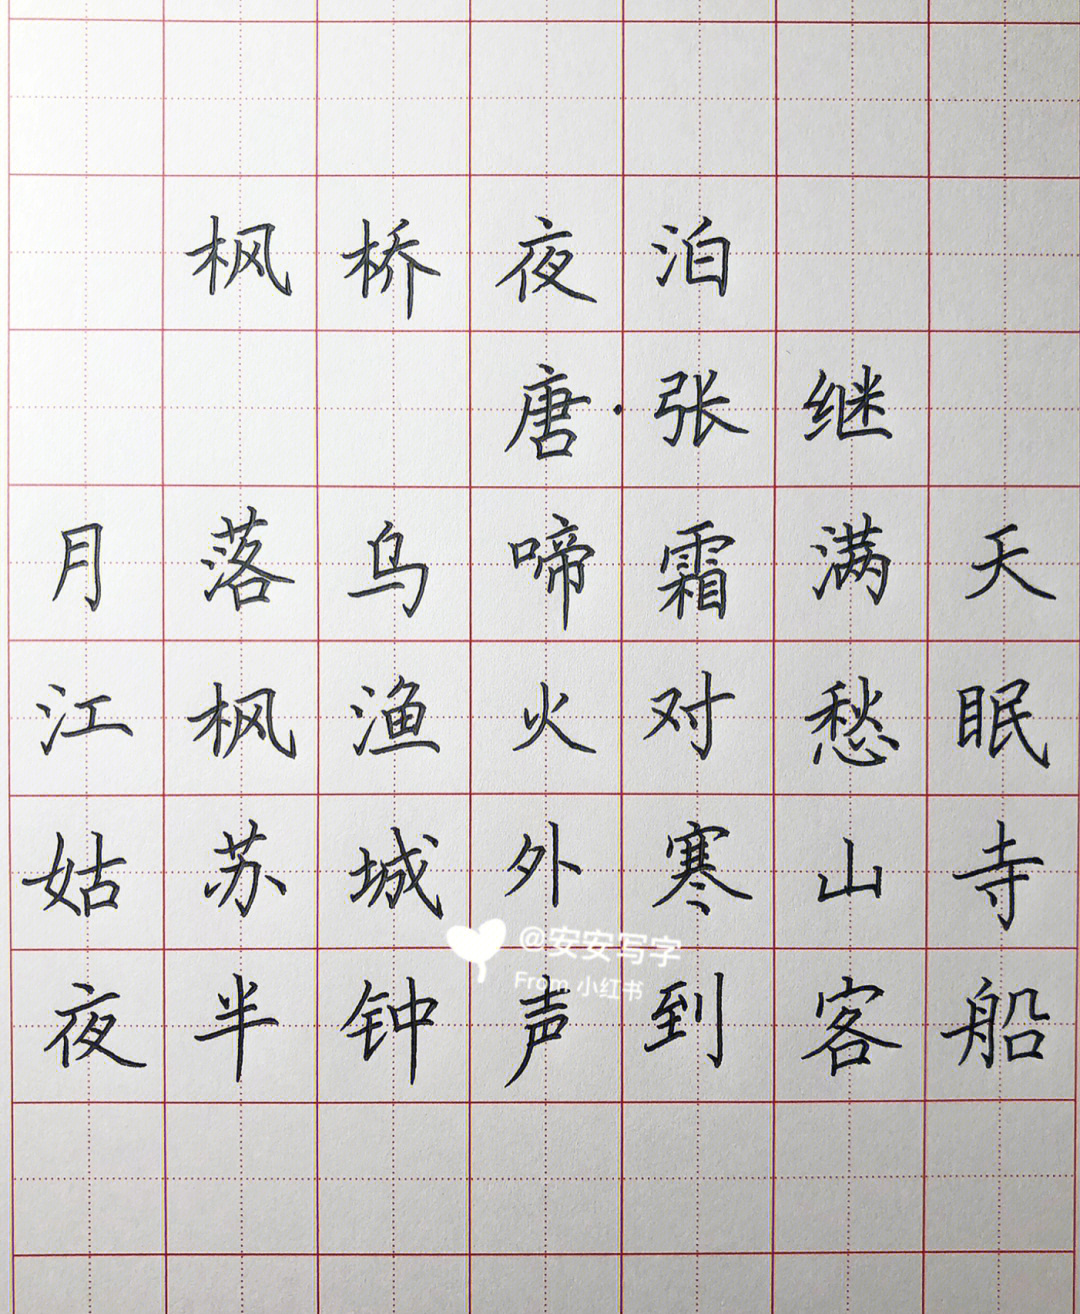 枫桥夜泊
唐·张继
月落乌啼霜满天
江枫渔火对愁眠
姑苏城外寒山寺
@安安写字
From 小红书
夜半钟声到客船